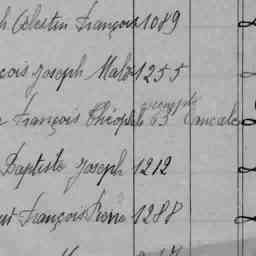 h Célestin François 1089
çois Joseph Malo 1255
François Théophile 63 Cancale
Baptiste Joseph 1212
François Pierre 1288